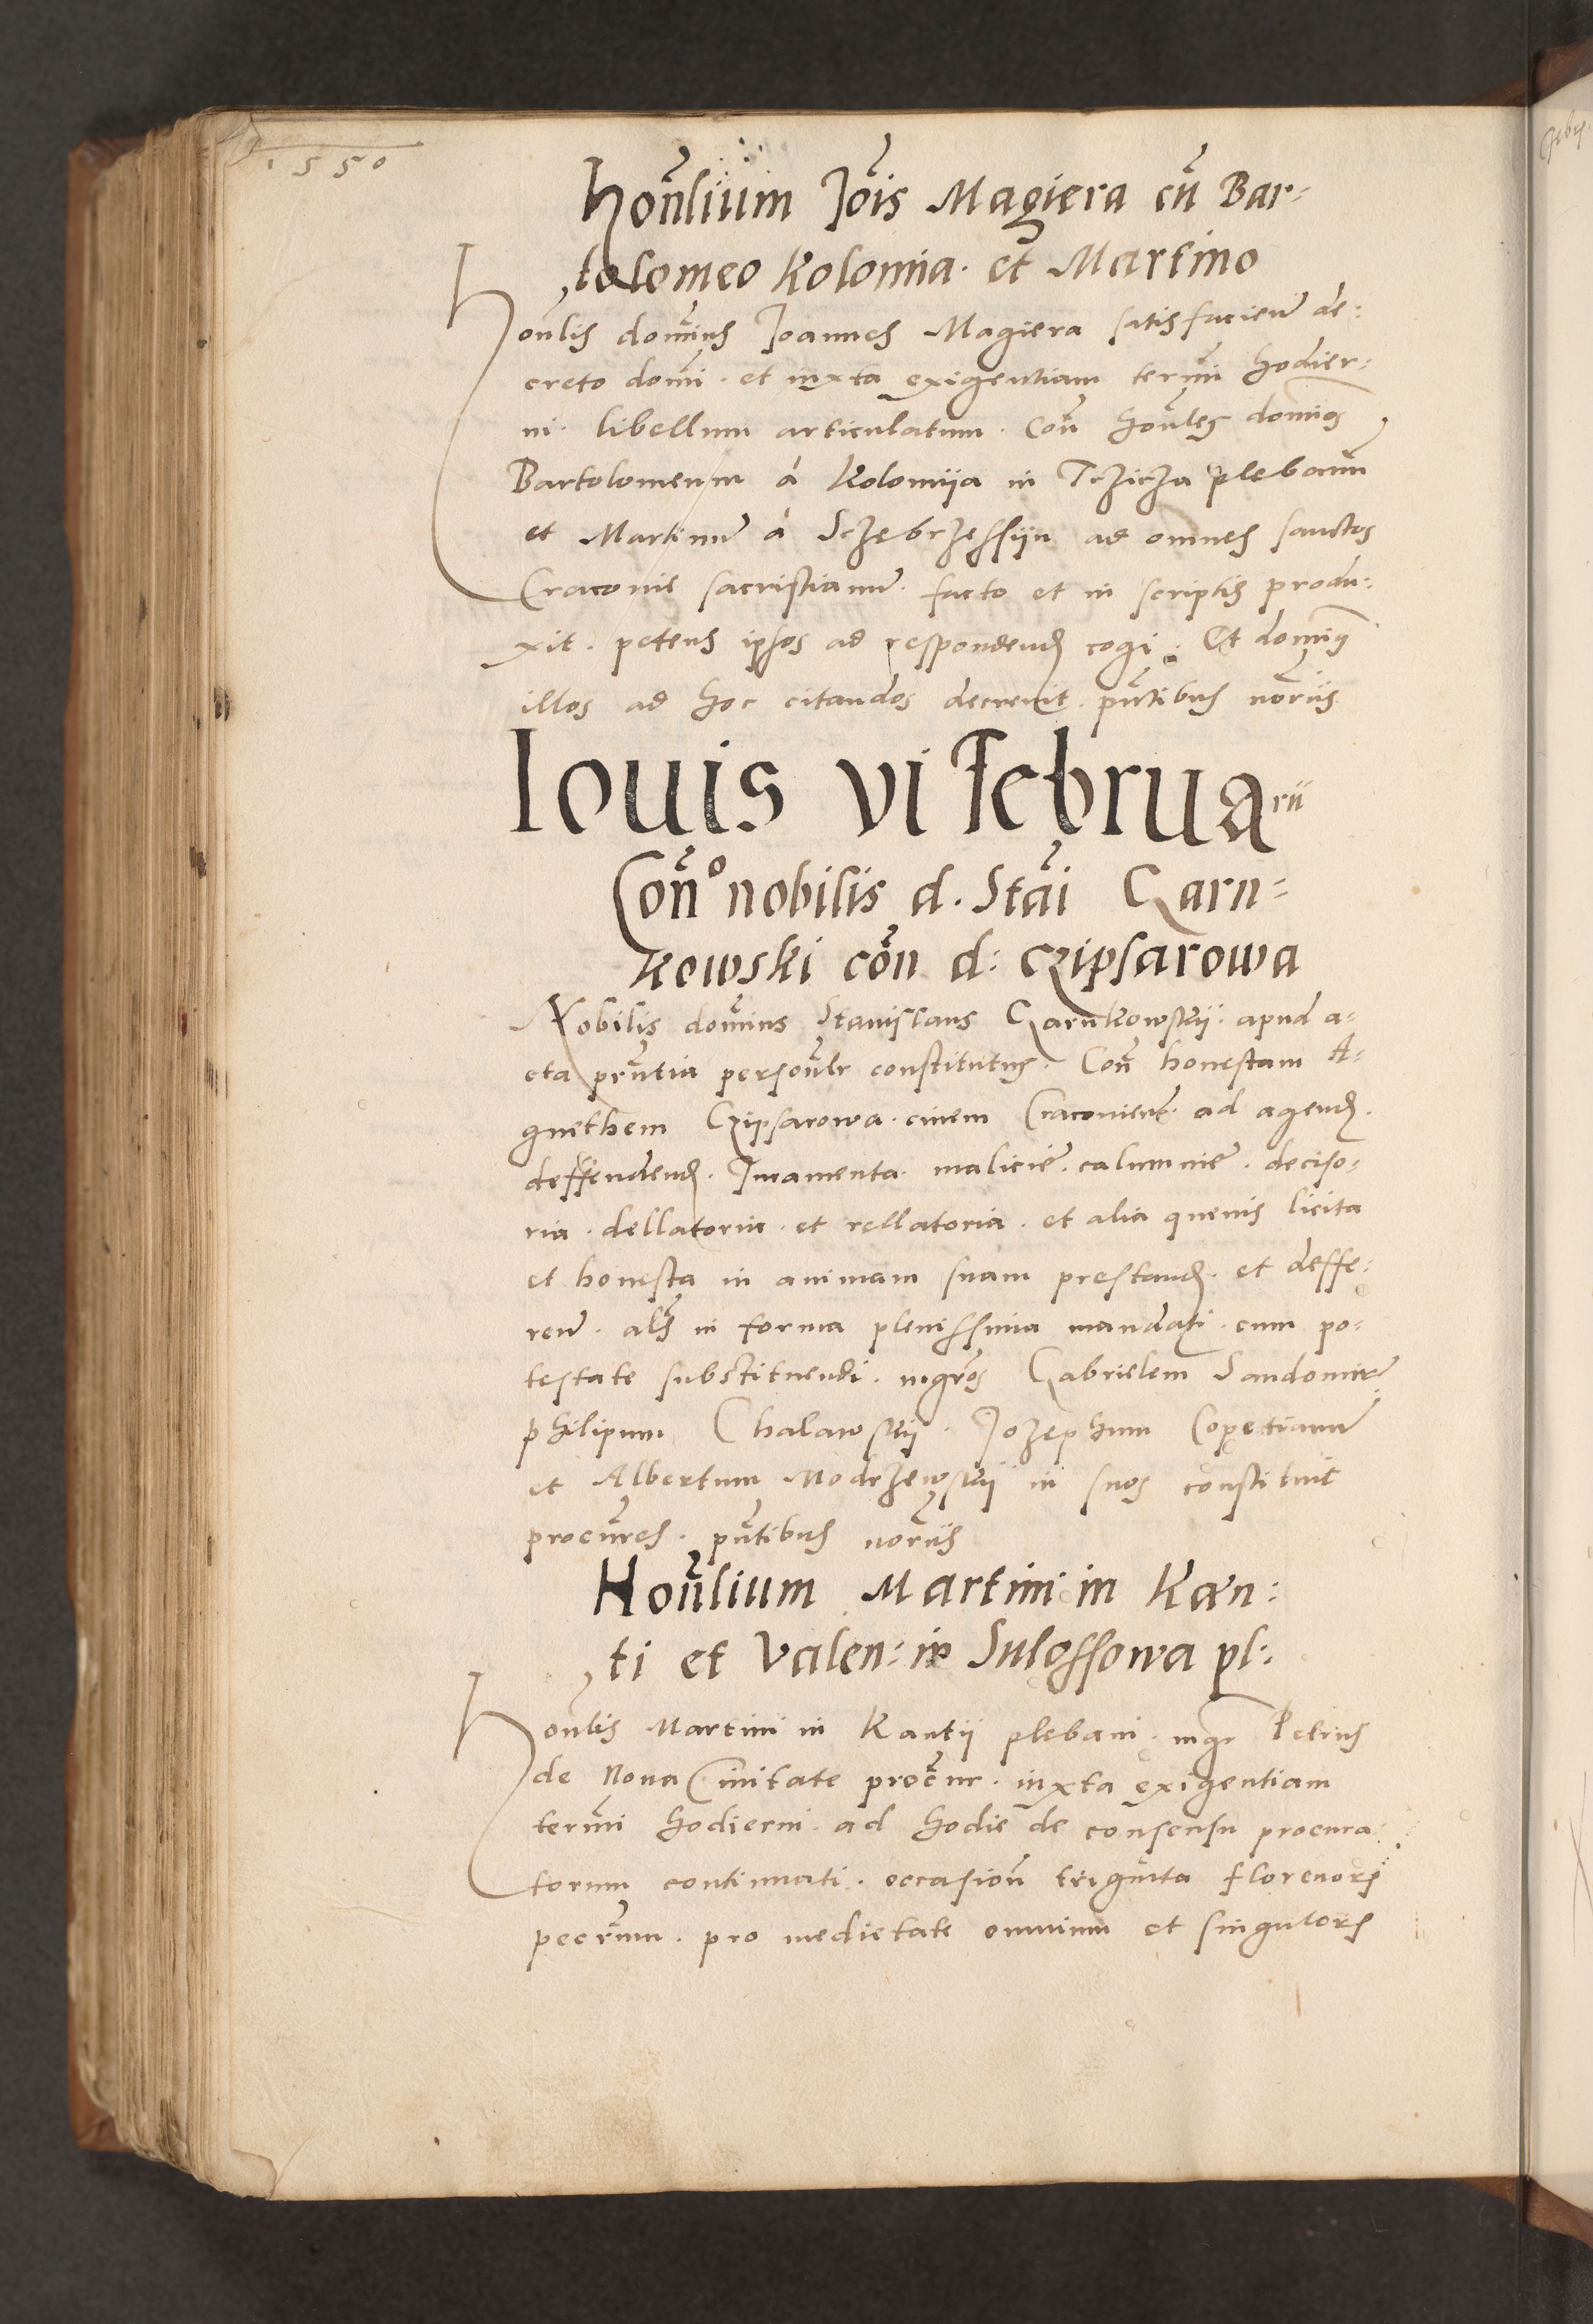 1550
Hon̄lium Jōis Magiera cū Bar=
tolomeo Kolomia. et Martino
Honl̄is domīnus Joannes Magiera satisfacien̄ de:
creto domī. et iuxta exigentiam term̄i hodier:
ni. libellum articulatum. Con̄ hon̄les domīos
Bartolomeum á Kolomija in Tczicza plebanū
et Martinū á Sczebrzessijn ad omnes sanctos
Cracovie sacristianū. facto et in scriptis produ:
xit. petens ipsos ad respondend̄ cogi. Et domīus
illos ad hoc citandos decrevit. pn̄tibus nor̄iis
Iouis vi Februarii
Con̄o nobilis d. Stāi Czarn=
kowski cōn d: Czipsarowa
Nobilis domīnus Stanislaus Czarnkowskij. apud a=
cta pn̄tia person̄lr constitutus. Con̄ honestam A=
gnethem Czipsarowa. civem Cracovien̄. ad agend̄.
deffendend̄. Juramenta. malicie. calumnie. deciso=
ria. dellatoria. et rellatoria. et alia quevis licita
et honesta in animam suam prestand̄. et deffe:
ren̄. als̄ in forma plenissima mandati. cum po:
testate substituendi. mgr̄os Gabrielem Sandomir̄
philipum Chalawskij. Jozephum Copetianū
et Albertum Modrzewskij in suos constituit
procūres. pn̄tibus nor̄iis
Hon̄lium Martini in Kan:
ti et Valen: in Sulossowa pl:
Hon̄lis Martini in Kantij plebani. mgr Petrus
de Nova Civitate procūr. iuxta exigentiam
term̄i hodierni. ad hodie de consensu procura
torum continuati. occasion̄ triginta florenor̄
peccn̄um. pro medietate omnium et singulor̄